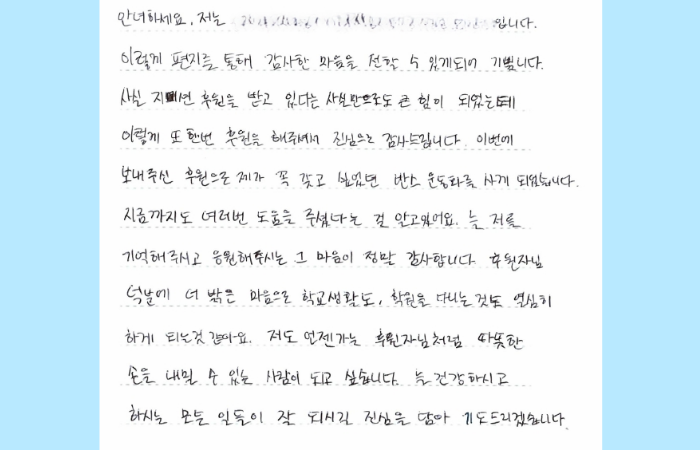 안녕하세요. 저는 입니다.
이렇게 편지를 통해 감사한 마음을 전할 수 있게되어 기쁩니다.
사실 지면 후원을 받고 있다는 사실만으로도 큰 힘이 되었는데
이렇게 또 한번 후원을 해주셔서 진심으로 감사드립니다. 이번에
보내주신 후원으로 제가 꼭 갖고 싶었던 반스 운동화를 사게 되었습니다.
지금까지도 여러번 도움을 주셨다는 걸 알고있어요. 늘 저를
기억해주시고 응원해주시는 그 마음이 정말 감사합니다. 후원자님
덕분에 더 밝은 마음으로 학교생활도, 학원을 다니는 것도 열심히
하게 되는것 같아요. 저도 언젠가는 후원자님처럼 따뜻한
손을 내밀 수 있는 사람이 되고 싶습니다. 늘 건강하시고
하시는 모든 일들이 잘 되시길 진심을 담아 기도드리겠습니다.